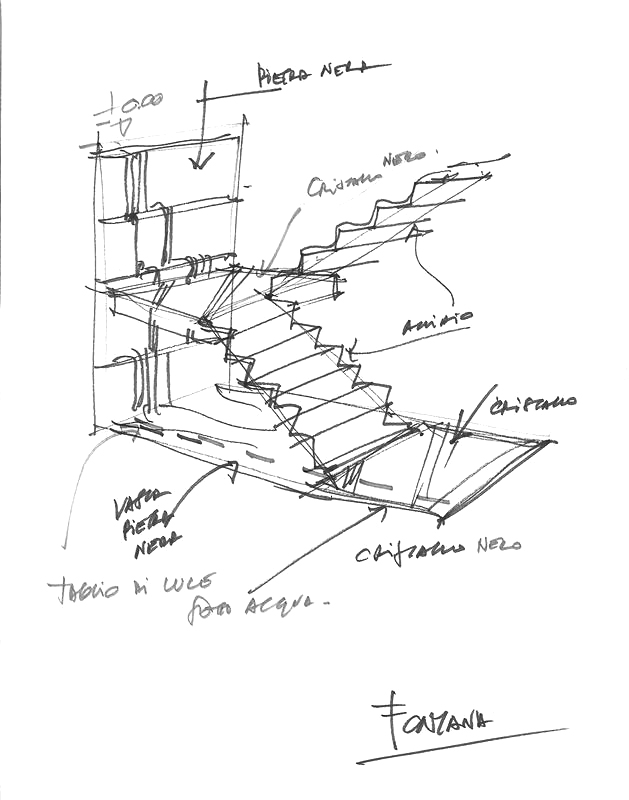 PIETRA NERA
±0.00
CRISTALLO NERO
ACCIAIO
CRISTALLO
VASCA
PIETRA
NERA
CRISTALLO NERO
TAGLIO DI LUCE
SOTTO ACQUA
FONTANA